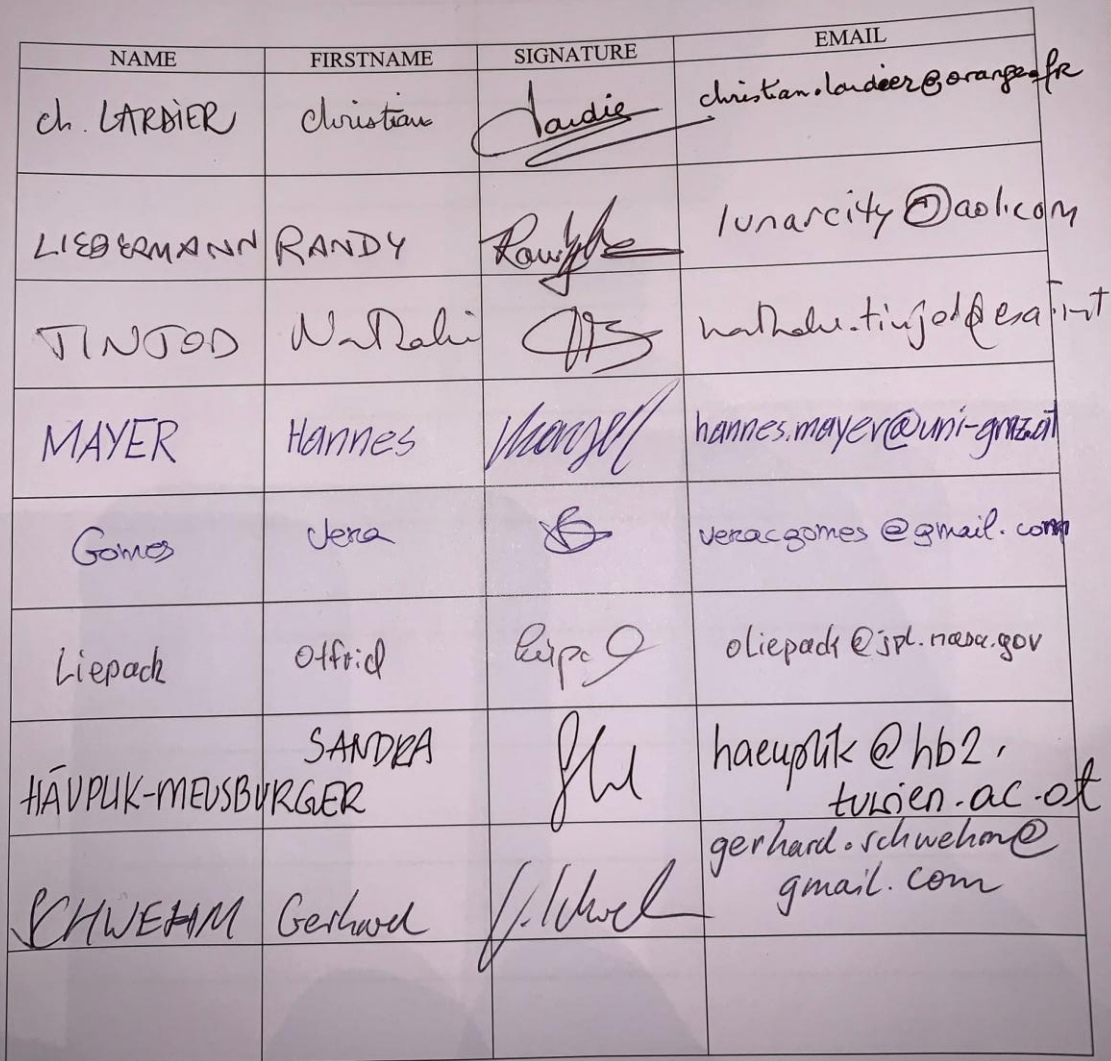 NAME FIRSTNAME SIGNATURE EMAIL
ch. LARDIER christian christian.lardier@orange.fr
LIEBERMANN RANDY lunarcity@aol.com
TINJOD Nathalie nathalie.tinjod@esa.int
MAYER Hannes hannes.mayer@uni-graz.at
Gomes Vera veracgomes@gmail.com
Liepack Otfrid oliepack@jpl.nasa.gov
SANDRA haeuplik@hb2.
HÄUPLIK-MEUSBURGER tuwien.ac.at
gerhard.schwehm@
SCHWEHM Gerhard gmail.com